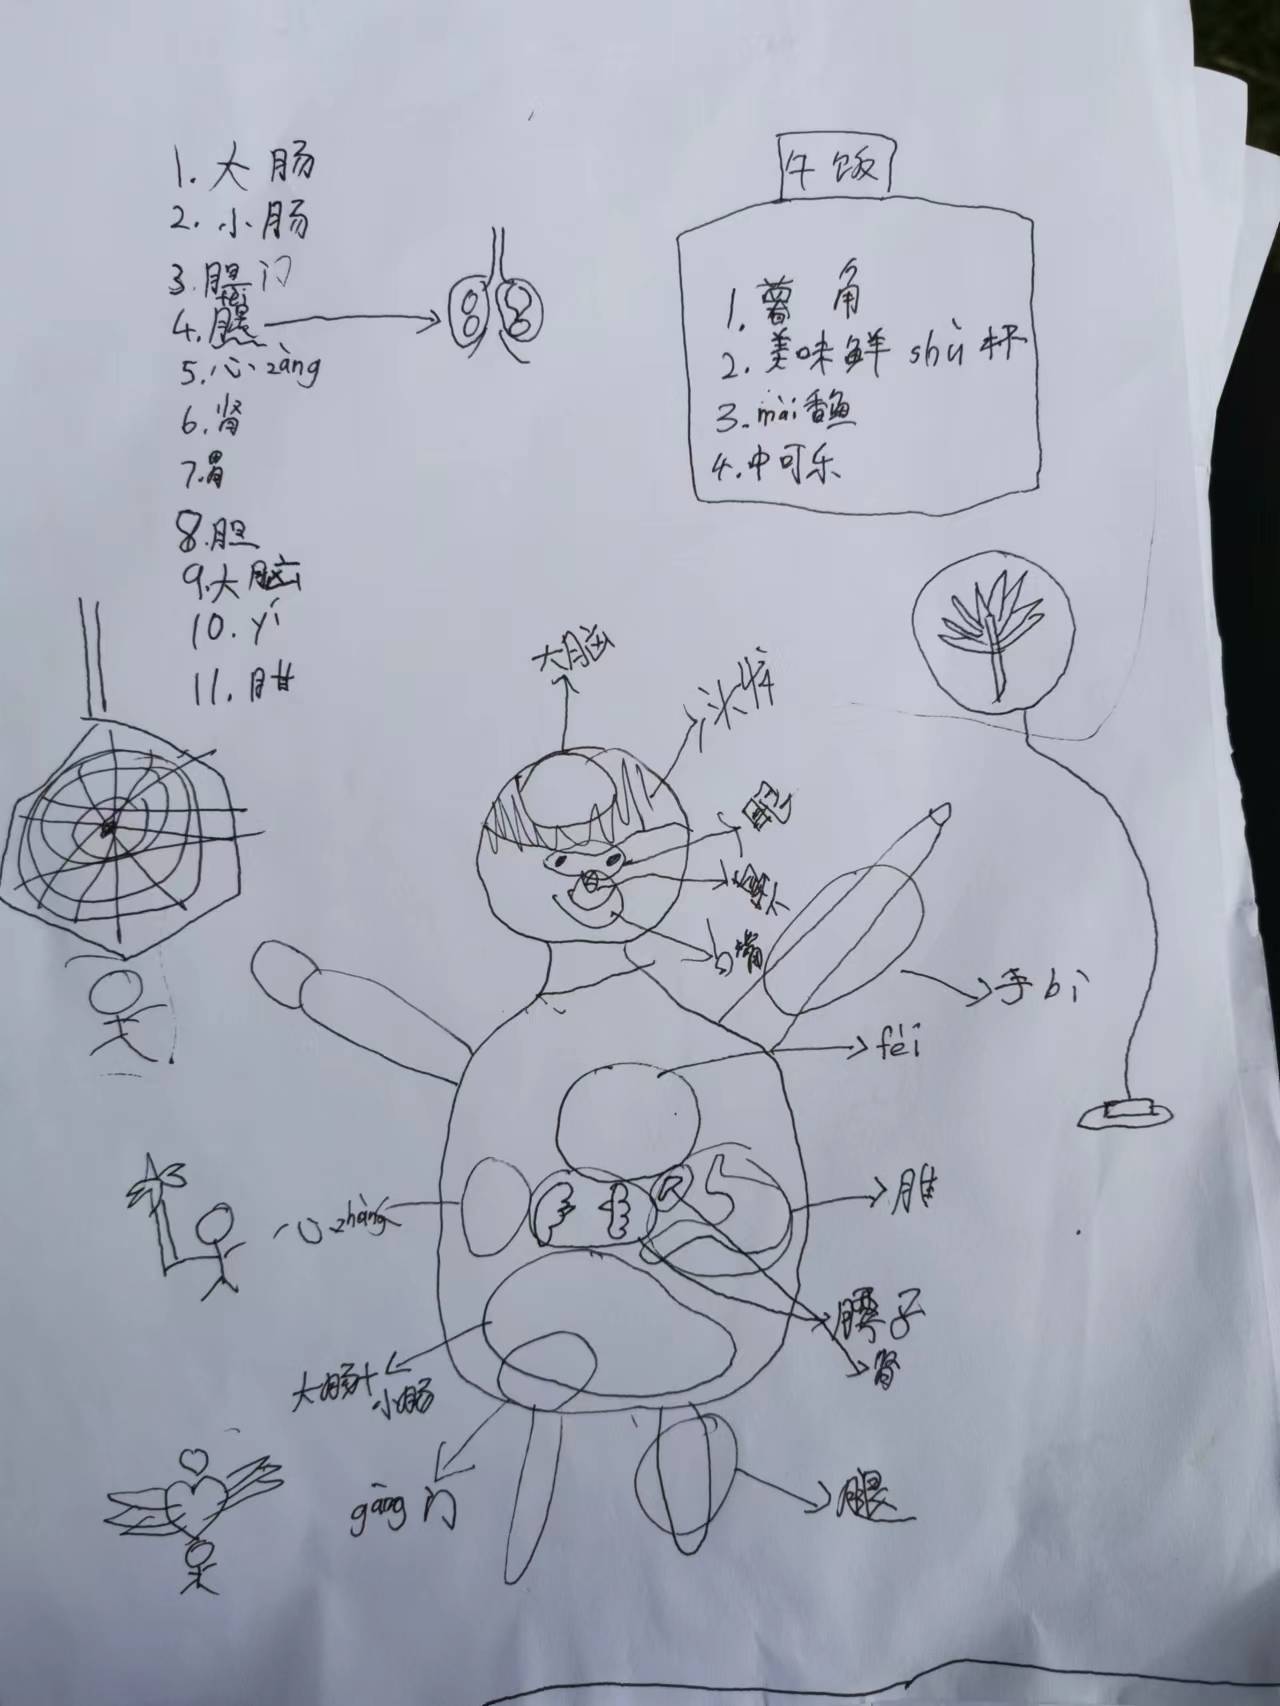 1. 大肠
2. 小肠
3. 门
fèi
4.
5. 心zàng
6. 肾
7. 胃
8. 胆
9. 大脑
10. yí
11. 肝
午饭
1. 薯角
2. 美味鲜shù杯
3. mài香鱼
4. 中可乐
大脑
手bì
fèi
心zhàng
脖子
肾
大肠+
小肠
gāng门
腿